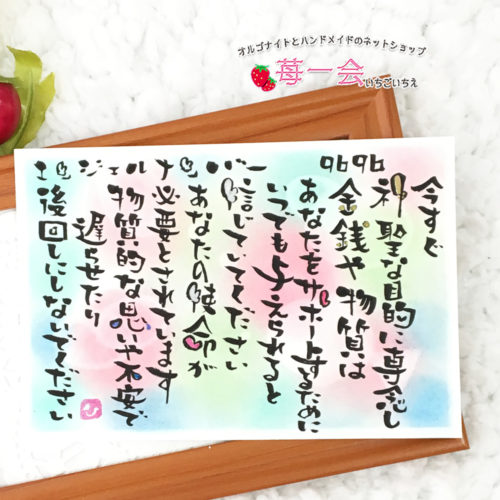 オルゴナイトとハンドメイドのネットショップ
苺一会
いちごいちえ
エンジェルナンバー 9696
今すぐ
神聖な目的に専念し
金銭や物質は
あなたをサポートするために
いつでも与えられると
信じていてください
あなたの使命が
必要とされています
物質的な思いや不安で
遅らせたり
後回しにしないでください